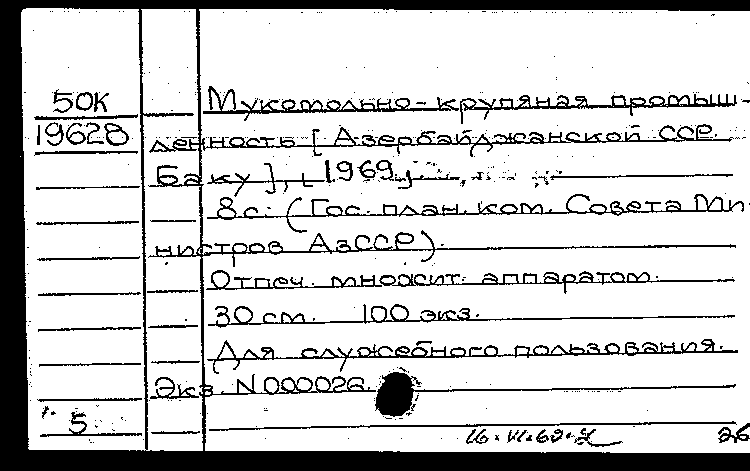 50К Мукомольно-крупяная промыш-
19628 ленность [Азербайджанской ССР.
Баку], [1969].
8 с. (Гос. план. ком. Совета Ми-
нистров АзССР).
Отпеч. множит. аппаратом.
30 см. 100 экз.
Для служебного пользования.
Экз. N 000026.
5
26